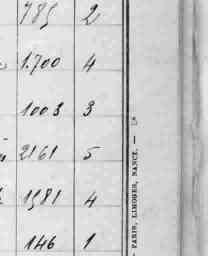 785 2
1.700 4
1003 3
2161 5
1581 4
146 1
PARIS, LIMOGES, NANCY. —